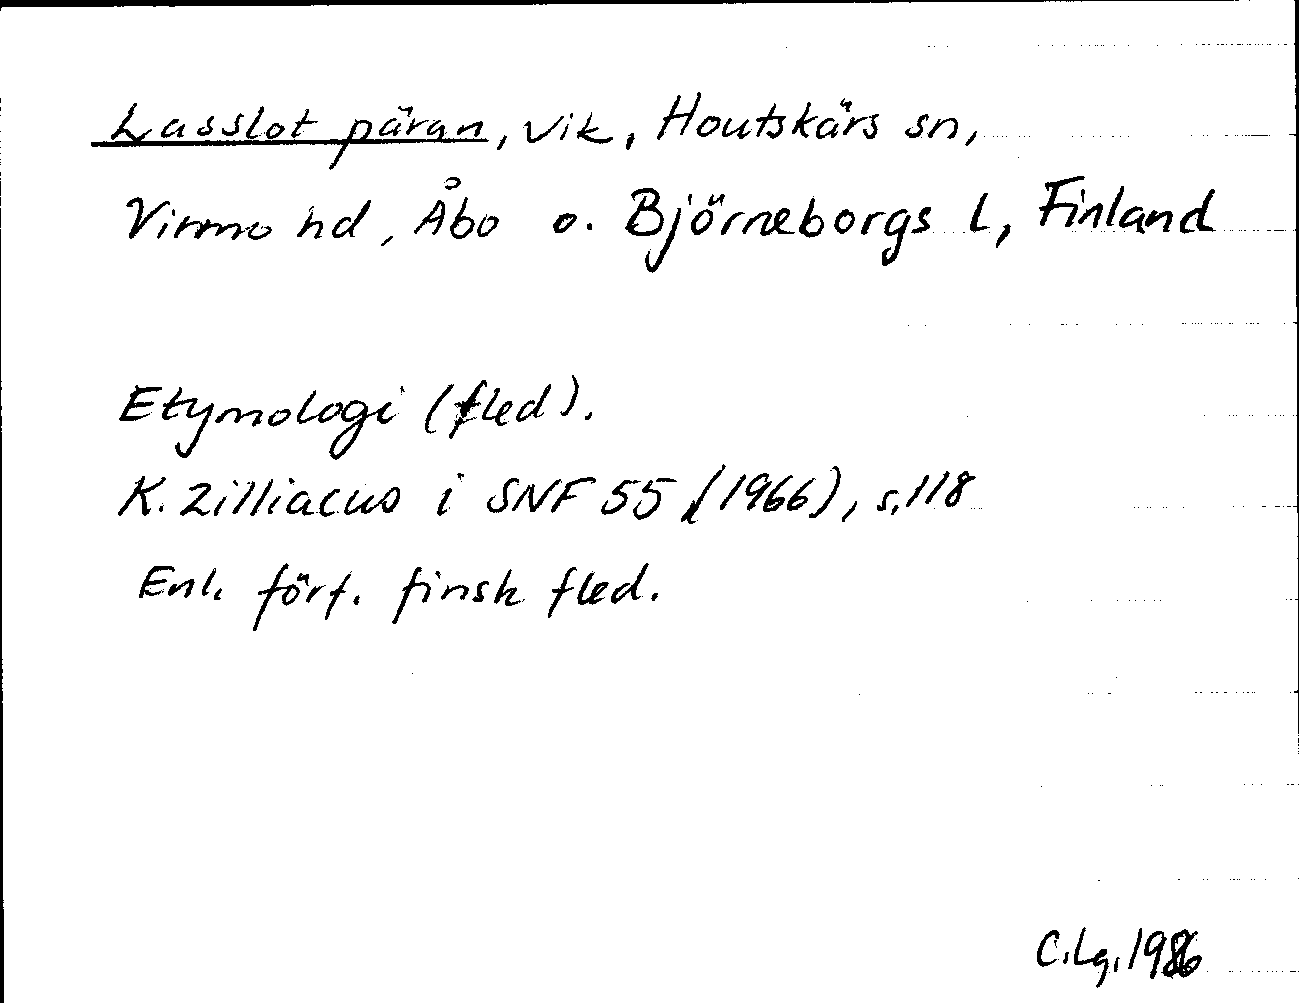 Lasslot päran, vik, Houtskärs sn,
Virmo hd, Åbo o. Björneborgs l, Finland
Etymologi (fled).
K. Zilliacus i SNF 55 (1966), s. 118
Enl. förf. finsk fled.
C. Lg. 1986